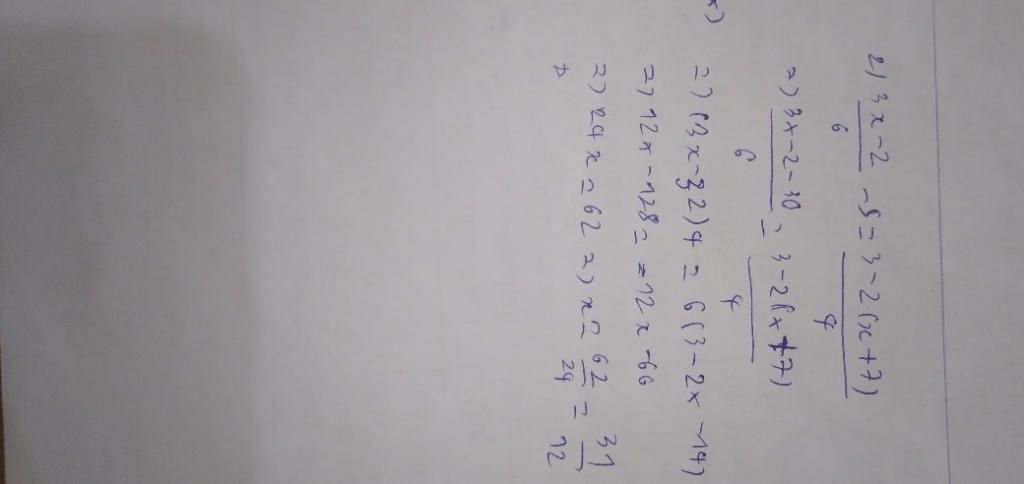 x)
2) 3x-2/6 -5 = 3-2(x+7)/4
=) 3x-2-30/6 = 3-2(x+7)/4
=) (3x-32)4 = 6(3-2x-14)
=) 12x-128 = -12x-66
=) 24x = 62 =) x = 62/24 = 31/12